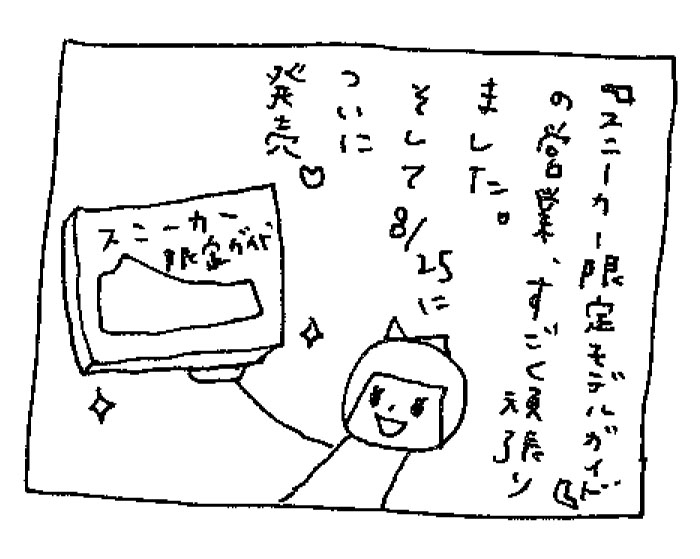 『スニーカー限定モデルガイド』
の営業、すごく頑張り
ました。
そして8/25に
ついに
発売♡
スニーカー
限定ガイド